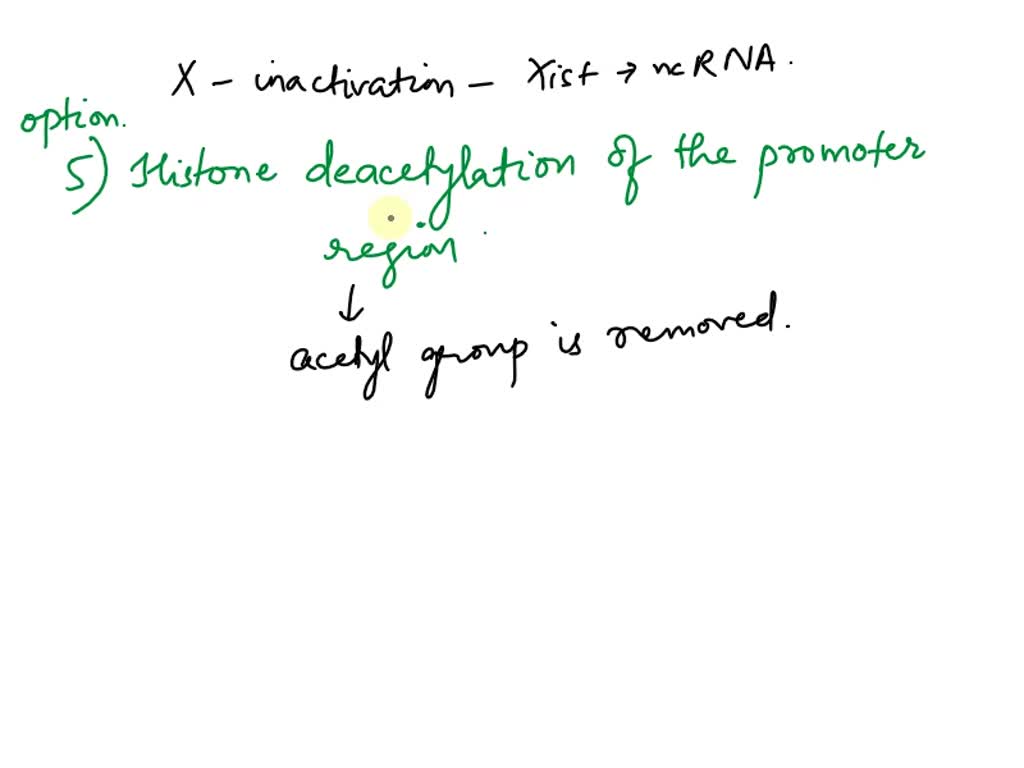 X - inactivation - Xist → ncRNA.
option.
5) Histone deacetylation of the promoter
region
↓
acetyl group is removed.